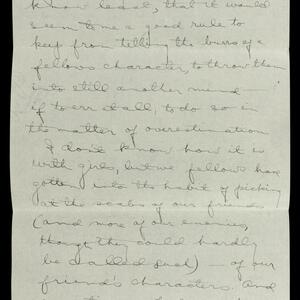 know least, that it would
seem to me a good rule to
keep from telling the burrs of a
fellows character, to throw them
into still another mind
if to err at all, to do so in
the matter of overestimation
I don't know how it is
with girls, but we fellows have
gotten into the habit of picking
at the scabs of our friends
(and more of our enemies,
though they could hardly
be called such) — of our
friend's characters. And